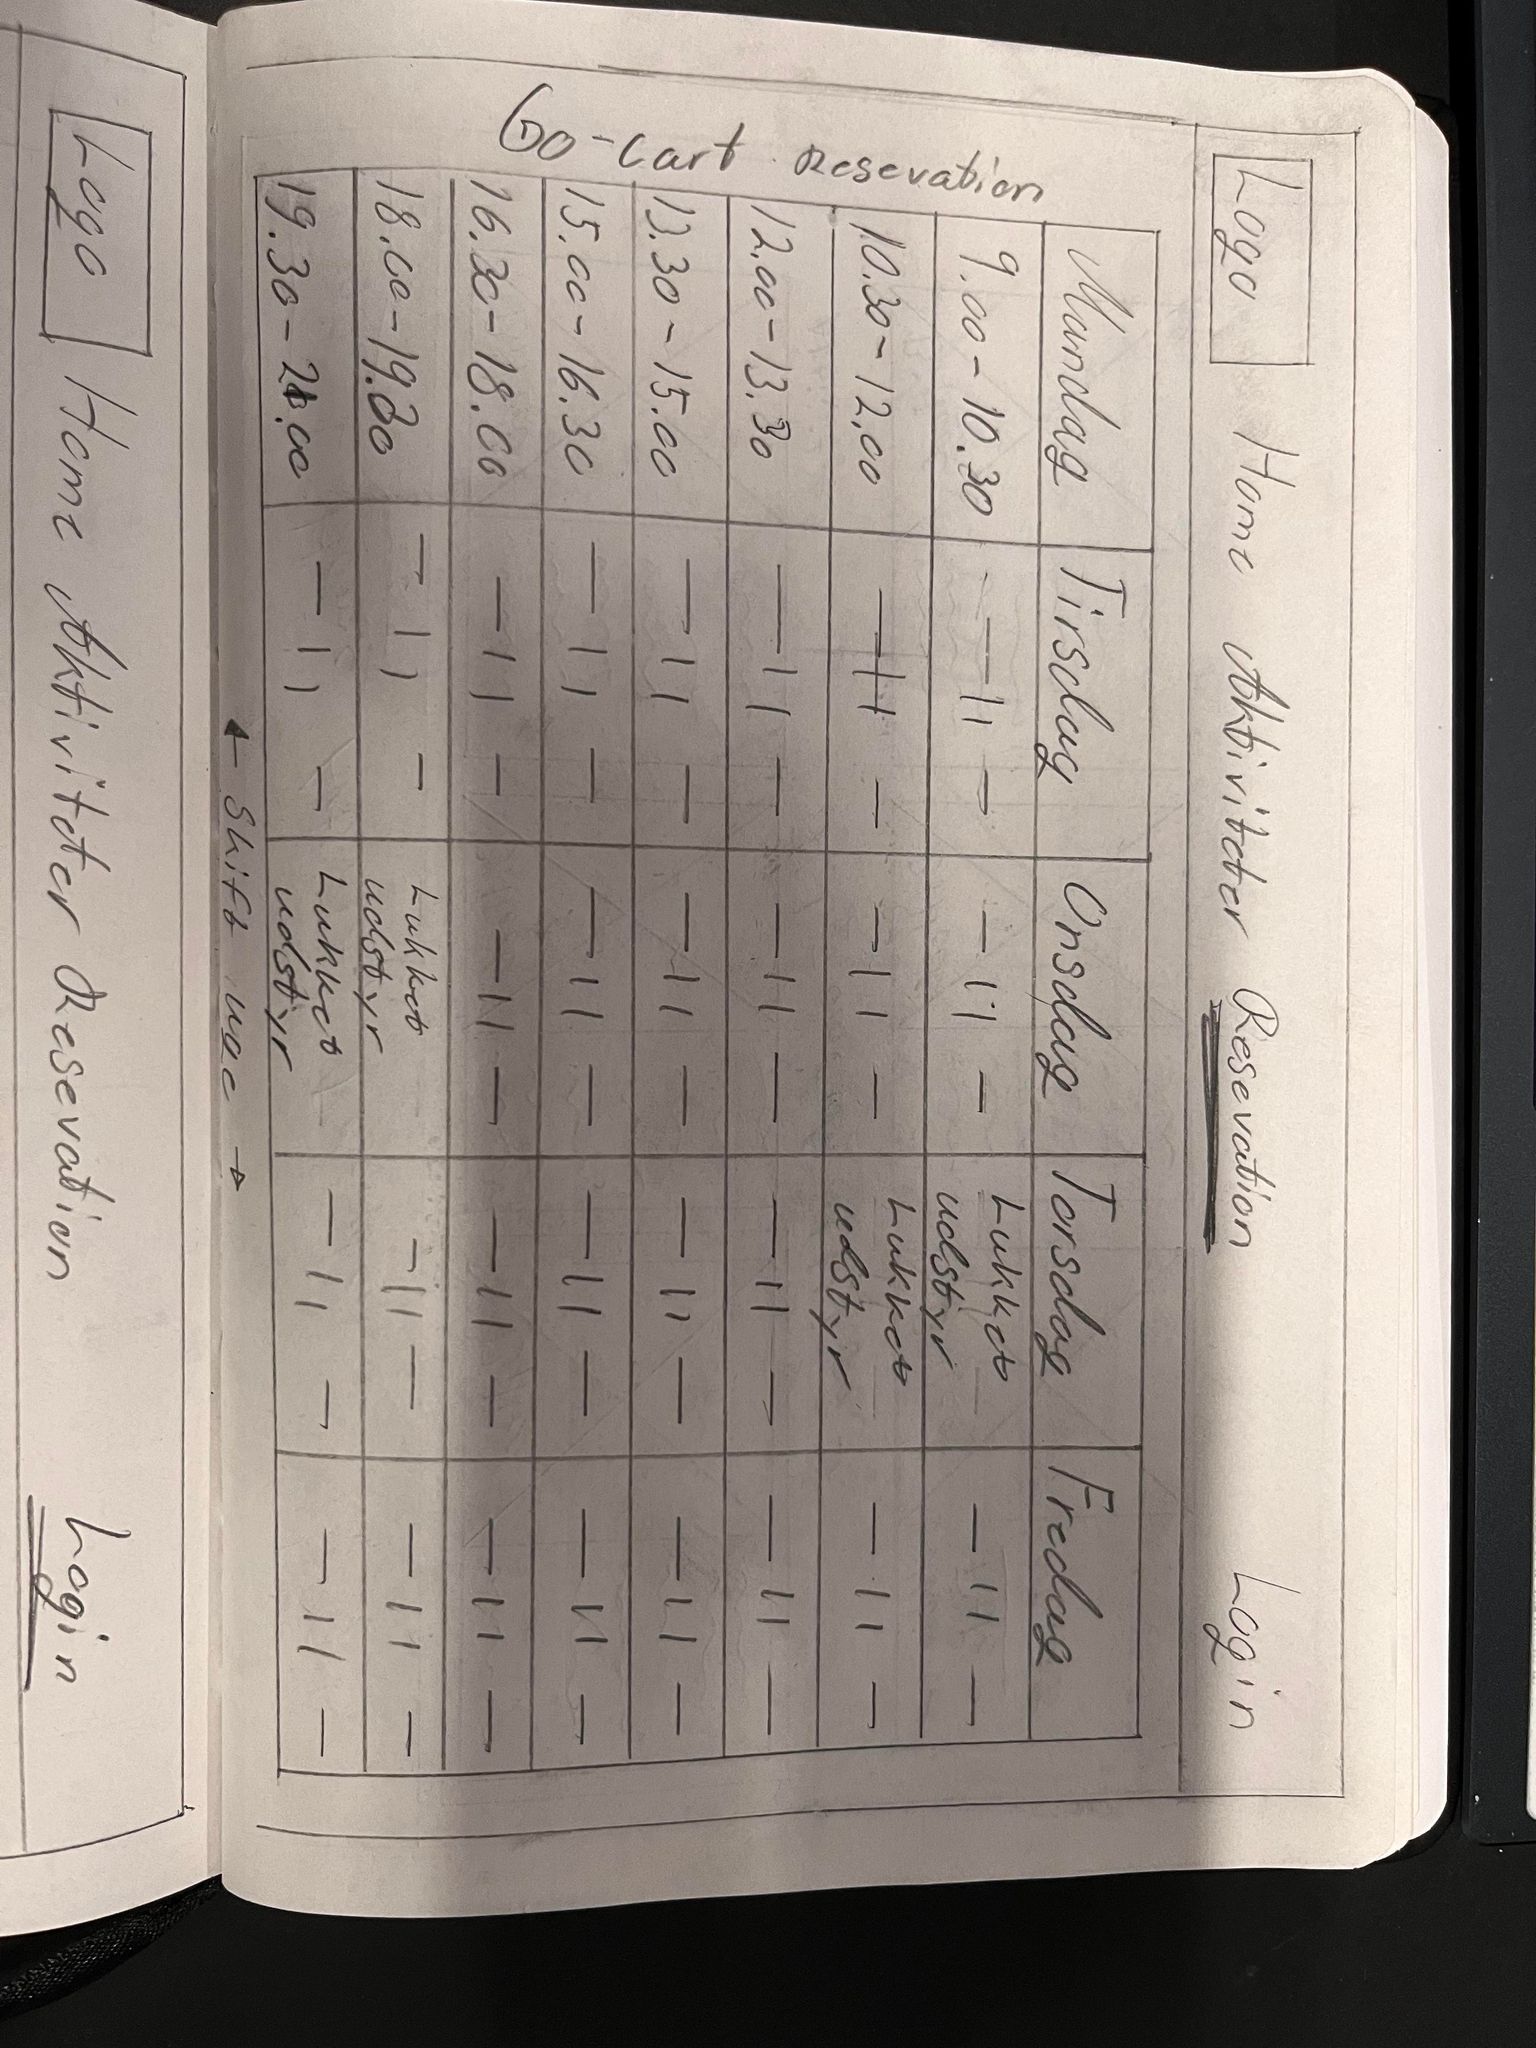 Logo Home Aktiviteter Resevation Login
Go-Cart Resevation
Mandag Tirsdag Onsdag Torsdag Fredag
9.00 - 10.30 — 11 — — 11 — Lukket udstyr — 11 —
10.30 - 12.00 — 11 — — 11 — Lukket udstyr — 11 —
12.00 - 13.30 — 11 — — 11 — — 11 — — 11 —
13.30 - 15.00 — 11 — — 11 — — 11 — — 11 —
15.00 - 16.30 — 11 — — 11 — — 11 — — 11 —
16.30 - 18.00 — 11 — — 11 — — 11 — — 11 —
18.00 - 19.30 — 11 — Lukket udstyr — 11 — — 11 —
19.30 - 21.00 — 11 — Lukket udstyr — 11 — — 11 —
← Skift uge →
Logo Home Aktiviteter Resevation Login